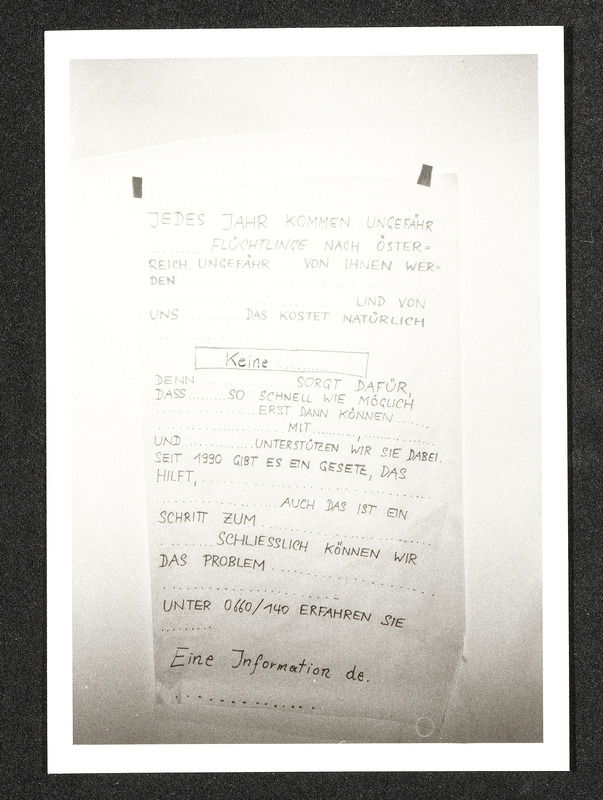 JEDES JAHR KOMMEN UNGEFÄHR
.......... FLÜCHTLINGE NACH ÖSTER=
REICH UNGEFÄHR .... VON IHNEN WER=
DEN ..............................
.............................. UND VON
UNS .......... DAS KOSTET NATÜRLICH
..............
Keine ..........
DENN .................. SORGT DAFÜR,
DASS ....... SO SCHNELL WIE MÖGLICH
.................. ERST DANN KÖNNEN ......
...................... MIT ........, ............
UND ............ UNTERSTÜTZEN WIR SIE DABEI.
SEIT 1990 GIBT ES EIN GESETZ, DAS
HILFT, ..............................
.................. AUCH DAS IST EIN
SCHRITT ZUM ......................
.......... SCHLIESSLICH KÖNNEN WIR
DAS PROBLEM ......................
..............................
UNTER 0660/140 ERFAHREN SIE
..........
Eine Information de.
..................